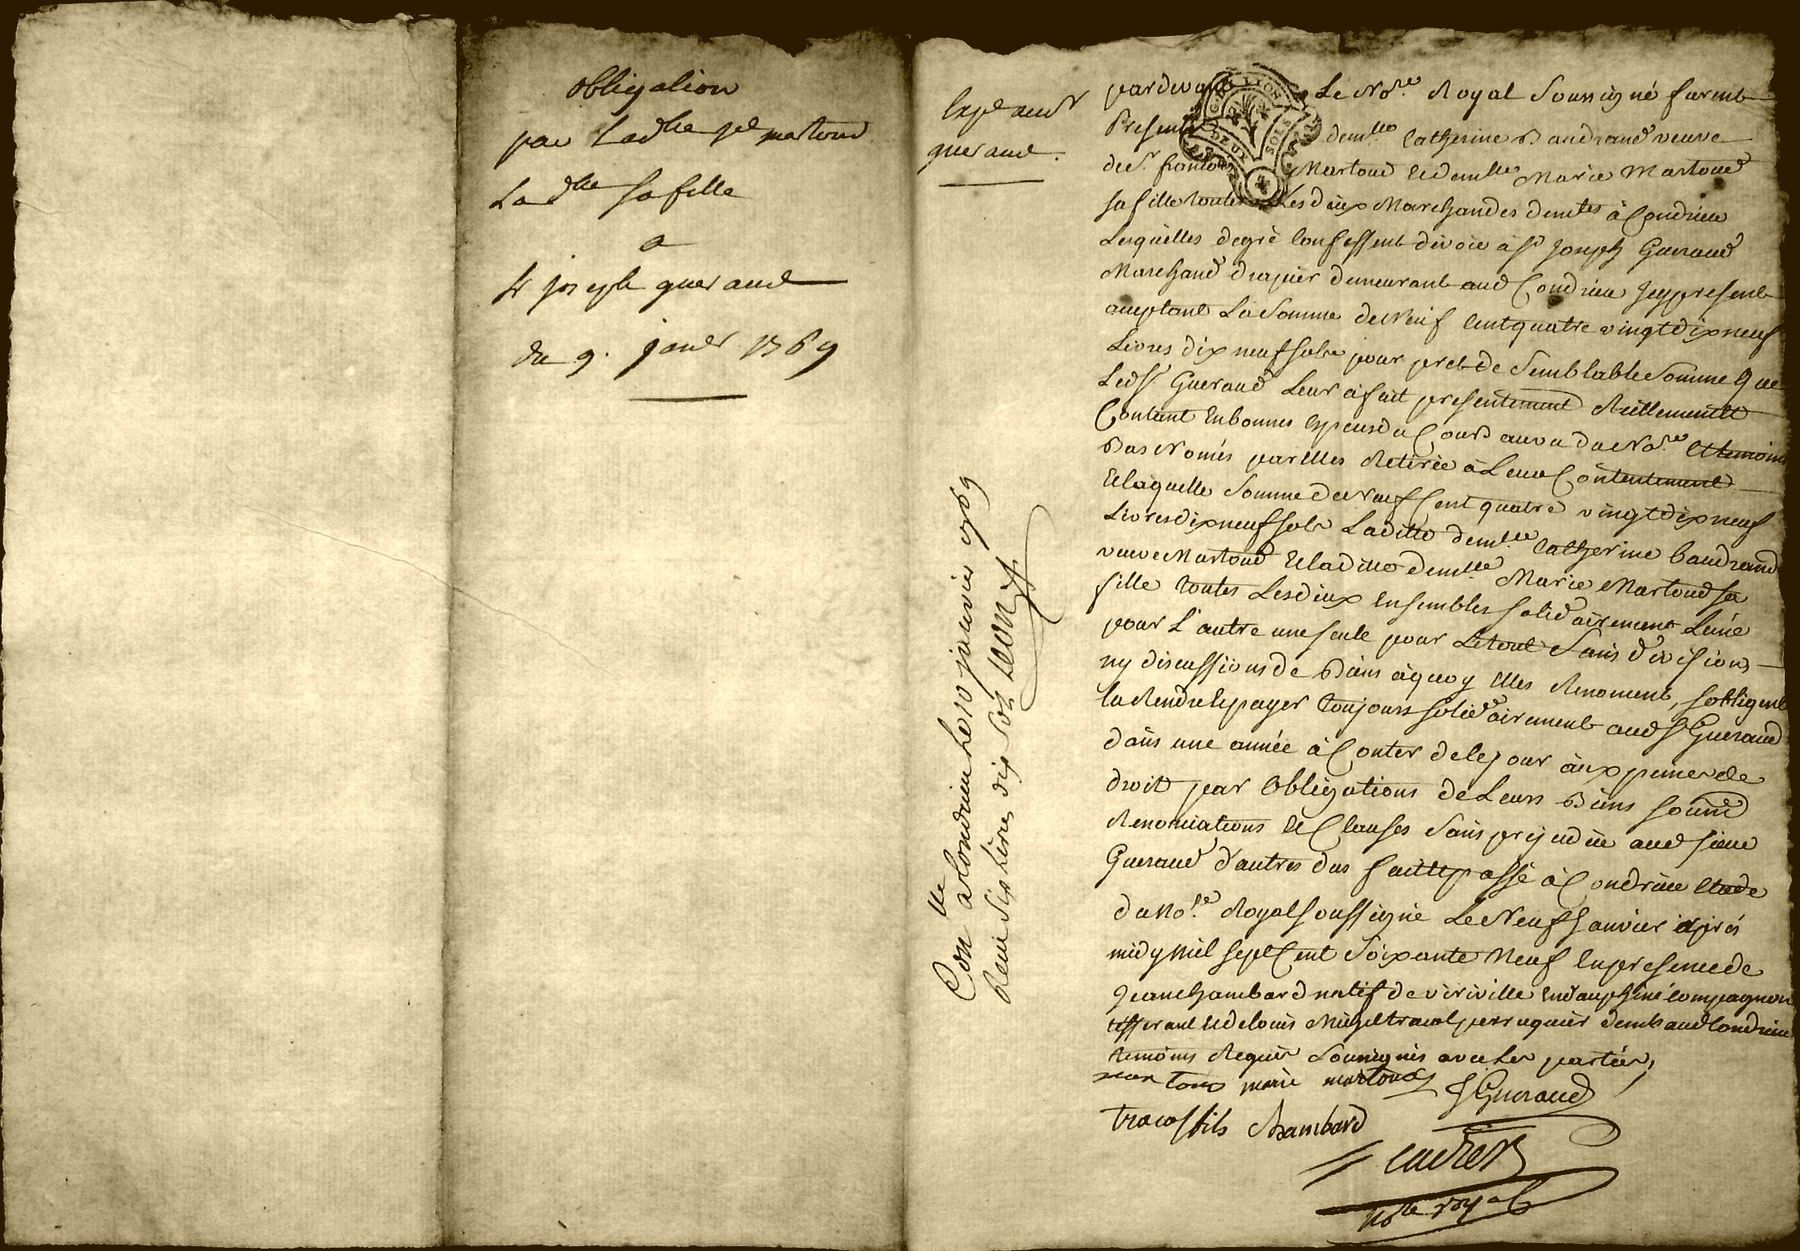 obligation
par Ladlle Ve martoud
Ladlle sa fille
a
Sr joseph gueraud
du 9. janer 1769
Expé aud Sr
gueraud.
Conlle a Condrieu Le 10 janvier 1769
Reçu sept livres dix sols
pardevant Le Nore Royal Soussigné furent
Presente demlle Catherine Baudrand veuve
de Sr francois Martoud et demlle Marie Martoud
sa fille toutes Les deux Marchandes demtes à Condrieu
Lesquelles de gré confessent devoir à Sr Joseph Gueraud
Marchand drapier demeurant aud Condrieu Icy present
aceptant La Somme de Neuf Cent quatre vingt dix neuf
Livres dix neuf sols pour pret de Semblable Somme que
Led Sr Gueraud Leur a fait presentement Réellement et
Contant En bonnes Especes du Cours au vu du Nore et temoins
Bas Només par Elles Retirée à Leur Contentement
Et laquelle Somme de Neuf Cent quatre vingt dix neuf
Livres dix neuf sols Laditte demlle Catherine baudrand
veuve Martoud Et laditte demlle Marie Martoud sa
fille toutes Les deux Ensembles solidairement L'une
pour L'autre une seule pour Le tout Sans division
ny discussions de Biens à quoy Elles Renoncent, sobligent
la Rendre et payer toujours solidairement aud Sr Gueraud
dans une année à Conter de ce jour aux peines de
droit par Obligations de Leurs Biens
Renonciations Et Clauses Sans prejudice aud sieur
Gueraud d'autres dus fait et passé à Condrieu Etude
du Nore Royal soussigné Le Neuf Janvier après
midy Mil sept Cent Soixante Neuf En presence de
Jean Chambard natif de viriville En dauphiné Compagnon
et de Louis Michel tracol perruquier demt aud Condrieu
temoins Requis Soussignés avec Les parties,
martoud marie martoud J Gueraud
tracol fils Chambard
Nore royal
GEN LYON
DEUX SOLS